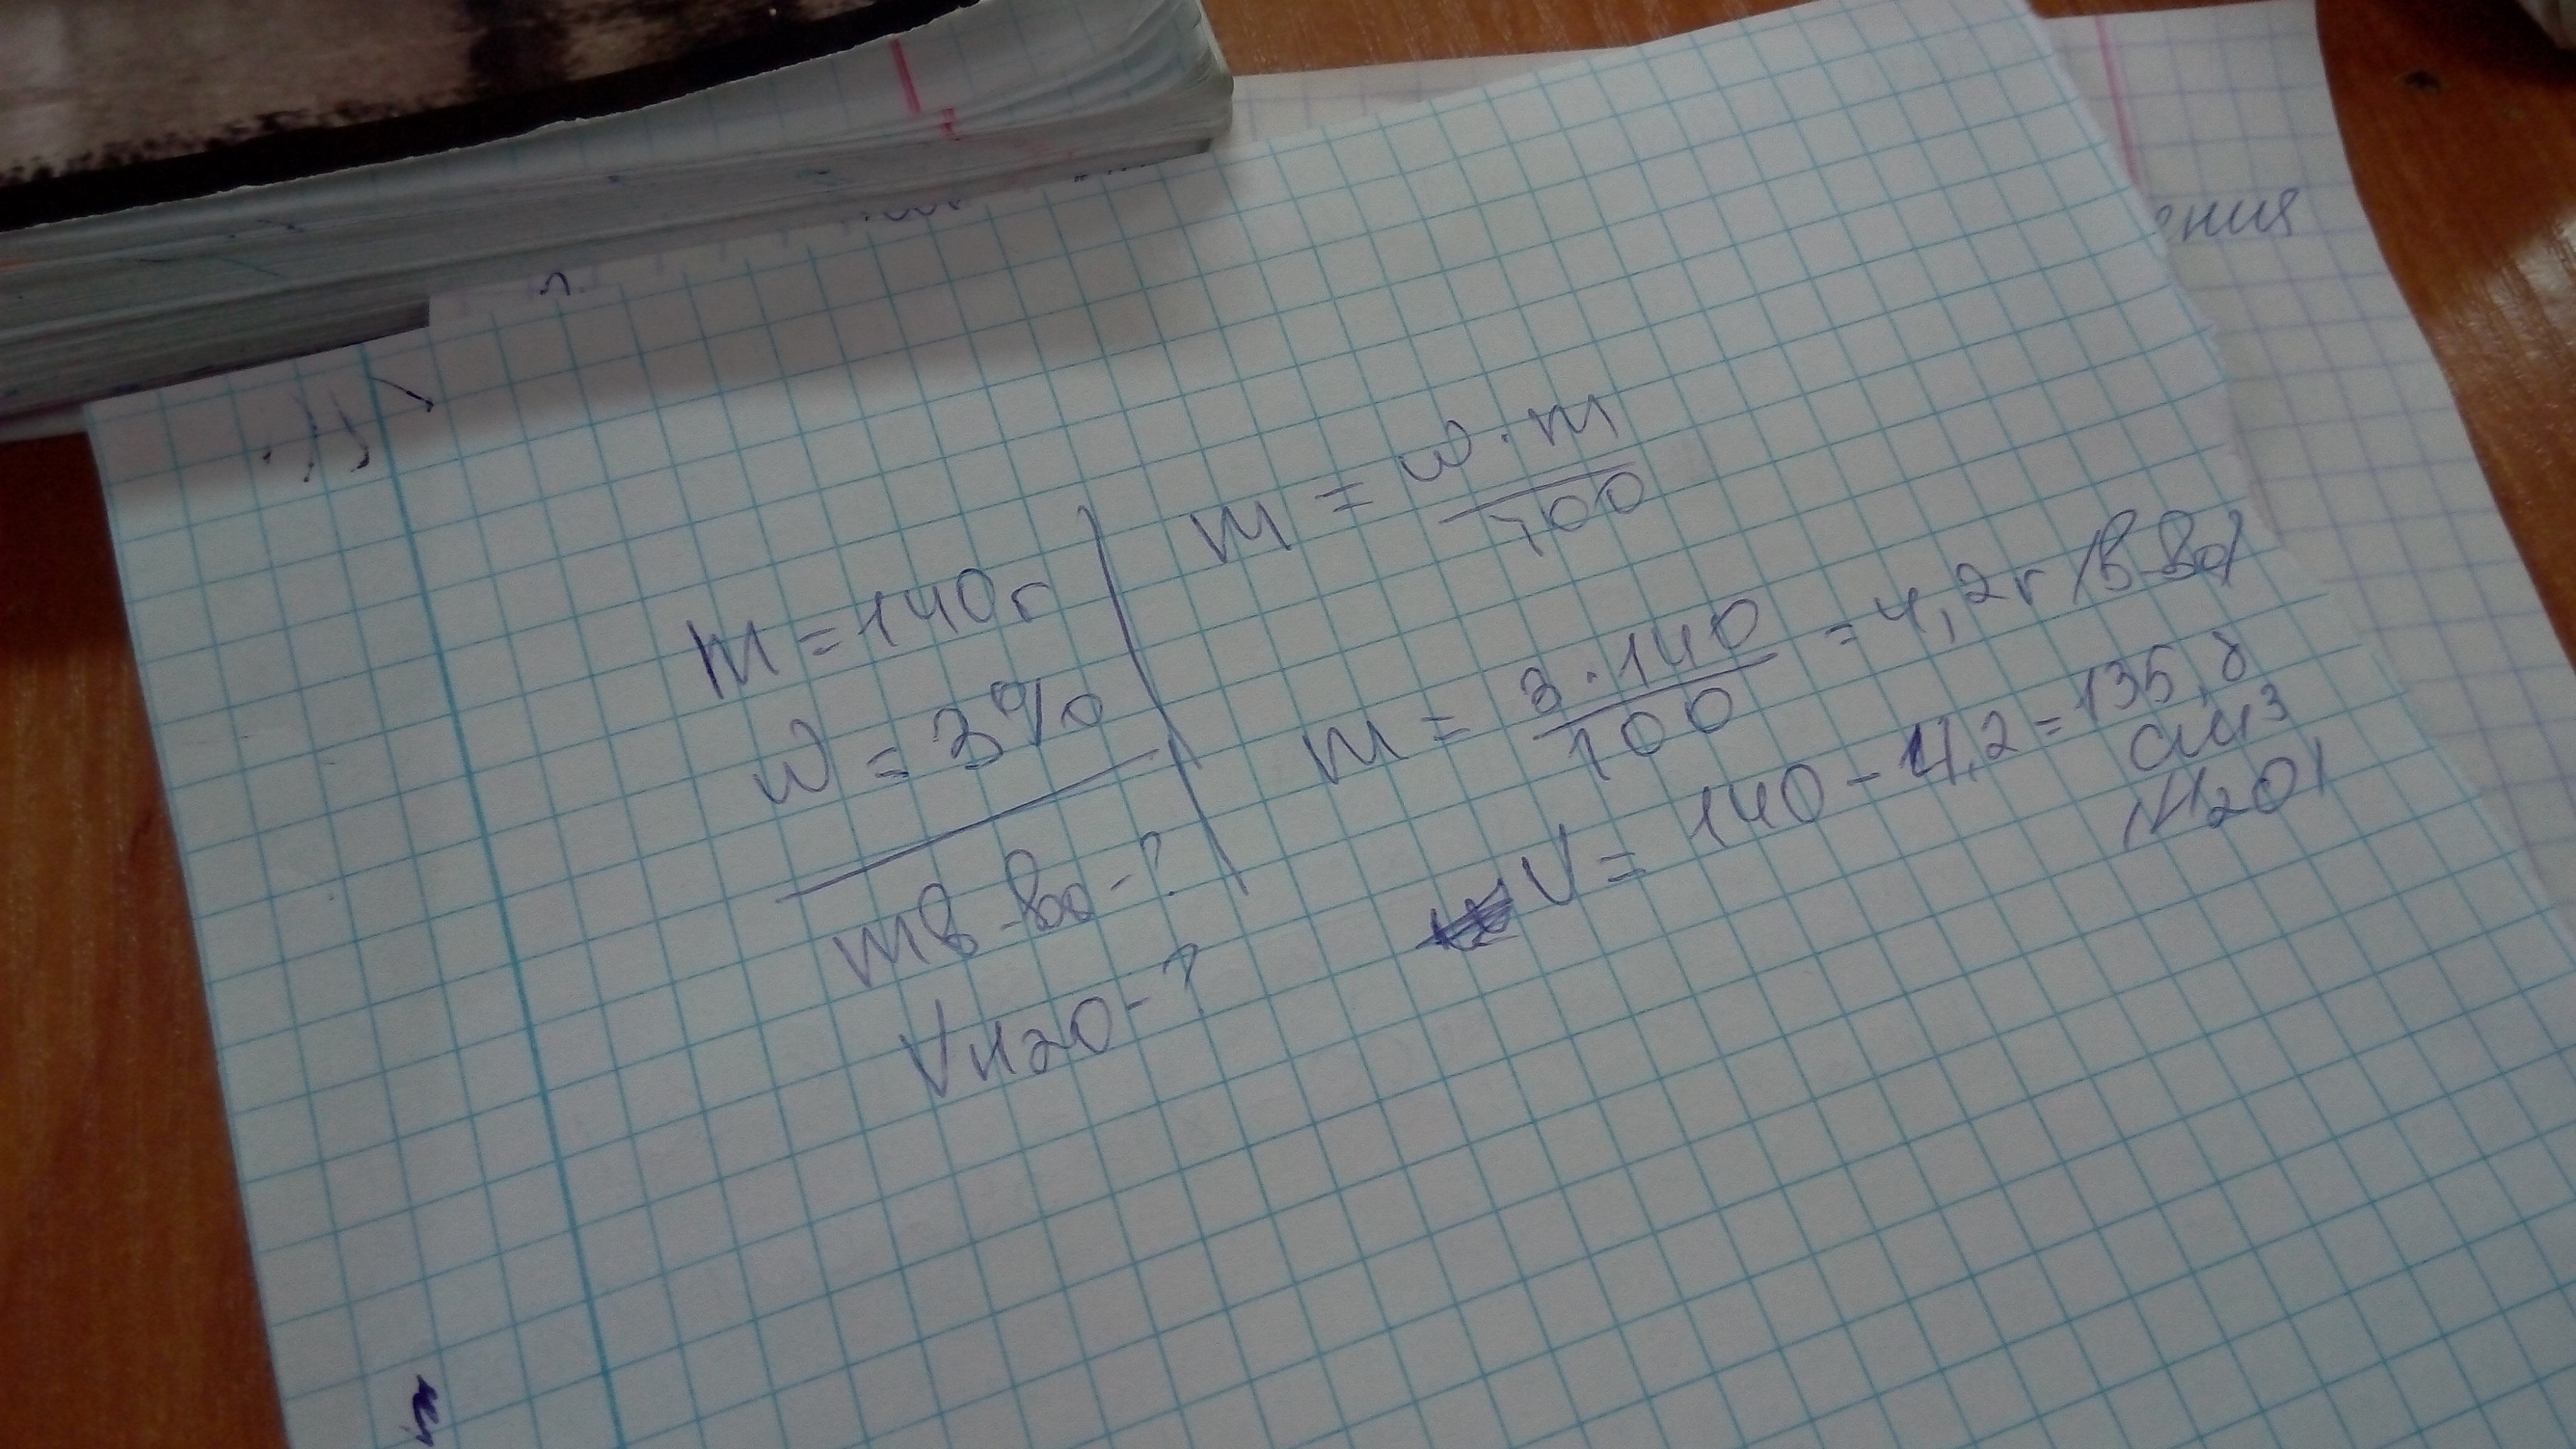 ения
m = 140г
w = 3%
mв-ва-?
VH2O-?
m = w · m / 100
m = 3 · 140 / 100 = 4,2г (в-ва)
V = 140 - 4,2 = 135,8
см3
(H2O)